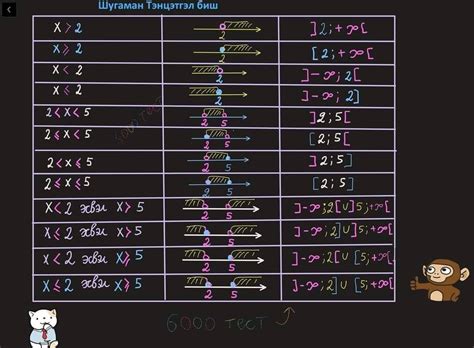 Шугаман Тэнцэтгэл биш
x > 2 2 ]2;+∞[
x ≥ 2 2 [2;+∞[
x < 2 2 ]-∞;2[
x ≤ 2 2 ]-∞;2]
2 < x < 5 2 5 ]2;5[
2 ≤ x < 5 2 5 [2;5[
2 < x ≤ 5 2 5 ]2;5]
2 ≤ x ≤ 5 2 5 [2;5]
x < 2 эсвэл x > 5 2 5 ]-∞;2[∪]5;+∞[
x ≤ 2 эсвэл x > 5 2 5 ]-∞;2]∪]5;+∞[
x < 2 эсвэл x ≥ 5 2 5 ]-∞;2[∪[5;+∞[
x ≤ 2 эсвэл x ≥ 5 2 5 ]-∞;2]∪[5;+∞[
6000 тест
6000 тест